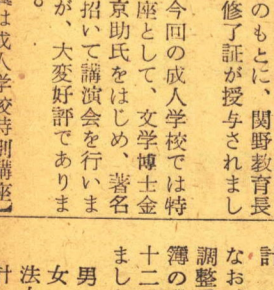 のもとに、関野教育長
修了証が授与されまし
今回の成人学校では特
座として、文学博士金
京助氏をはじめ、著名
招いて講演会を行いま
が、大変好評でありま
。
は成人学校特別講座】
計
なお
調整
簿の
十二
まし
男
女
法
計